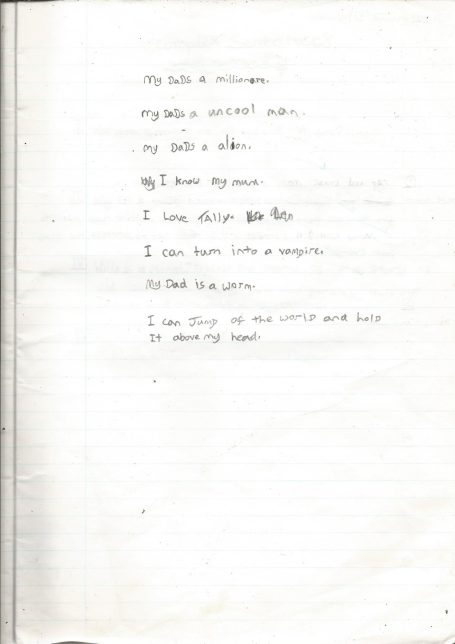 My DaDS a millionare.
my DaDS a uncool man.
my DaDS a alion.
I know my mum.
I Love TAlly.
I can turn into a vampire.
My Dad is a worm.
I can Jump of the world and hold
It above my head.